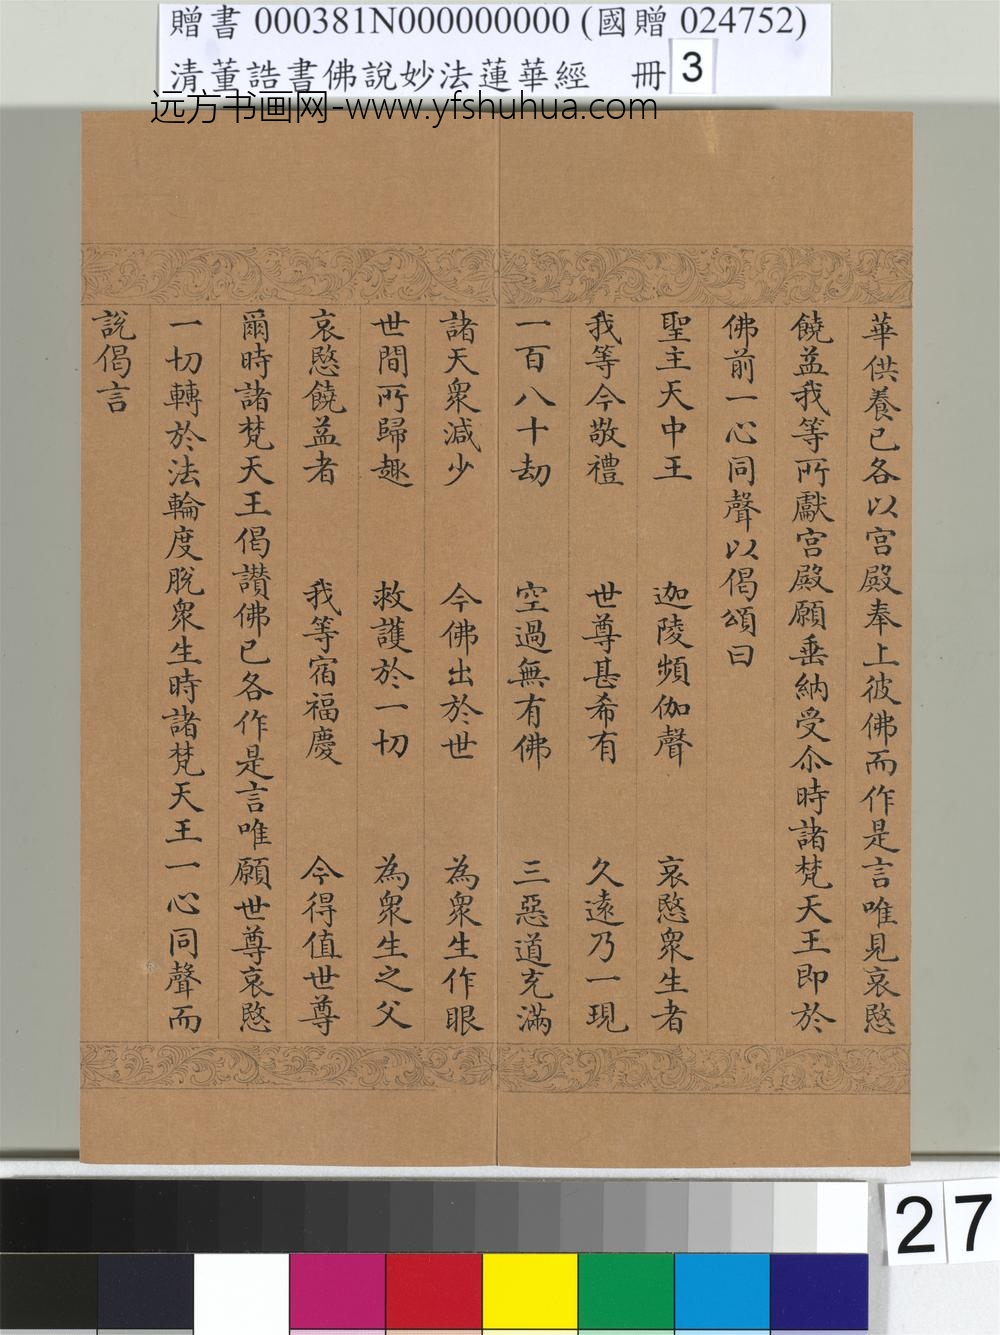 贈書 000381N000000000 (國贈 024752)
清董誥書佛說妙法蓮華經 冊 3
远方书画网-www.yfshuhua.com
華供養已各以宮殿奉上彼佛而作是言唯見哀愍
饒益我等所獻宮殿願垂納受尒時諸梵天王即於
佛前一心同聲以偈頌曰
聖主天中王 迦陵頻伽聲 哀愍衆生者
我等今敬禮 世尊甚希有 久遠乃一現
一百八十劫 空過無有佛 三惡道充滿
諸天衆減少 今佛出於世 為衆生作眼
世間所歸趣 救護於一切 為衆生之父
哀愍饒益者 我等宿福慶 今得值世尊
爾時諸梵天王偈讃佛已各作是言唯願世尊哀愍
一切轉於法輪度脫衆生時諸梵天王一心同聲而
說偈言
27